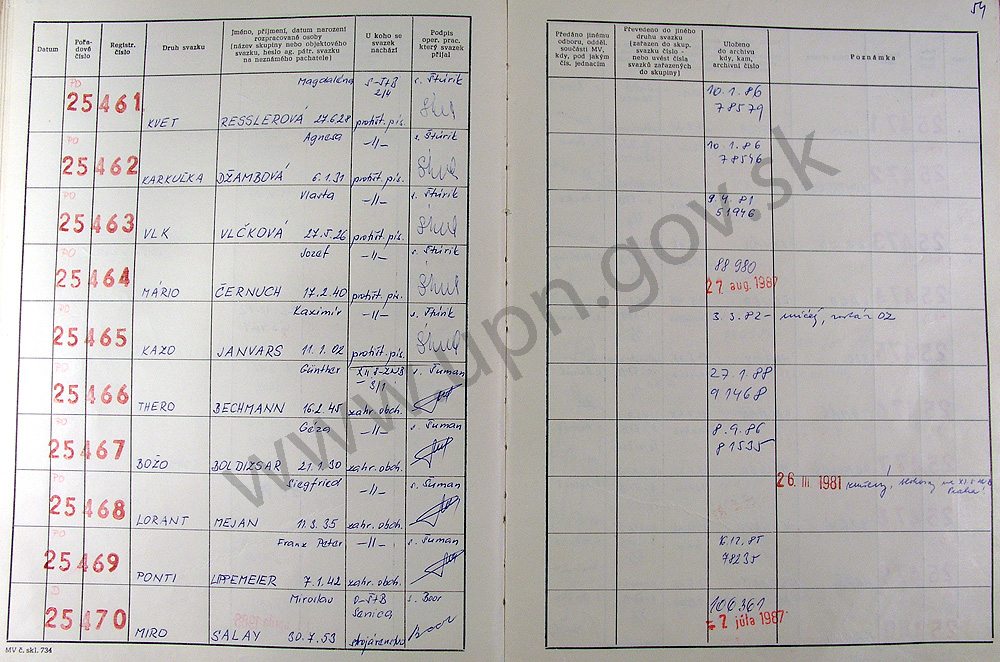 54
Datum
Pořadové číslo
Registr. číslo
Druh svazku
Jméno, příjmení, datum narození
rozpracované osoby
(název skupiny nebo objektového
svazku, heslo ag. pátr. svazku
na neznámého pachatele)
U koho se
svazek
nachází
Podpis
oper. prac.
který svazek
přijal
Předáno jinému
odboru, odděl.
součásti MV,
kdy, pod jakým
čís. jednacím
Převedeno do jiného
druhu svazku
(zařazen do skup.
svazku číslo -
nebo uvést čísla
svazků zařazených
do skupiny)
Uloženo
do archivu
kdy, kam,
archivní číslo
Poznámka
PO Magdaléna S-ŠtB s. Štúrik 10.1.86
25 461 2/4 78579
KVET RESSLEROVÁ 27.6.28 protišt. pis.
PO Agnesa -//- s. Štúrik 10.1.86
25 462 78546
KARKULKA DŽAMBOVÁ 6.1.31 protišt. pis.
PO Vlasta -//- s. Štúrik 9.4.81
25 463 51946
VLK VLČKOVÁ 27.5.26 protišt. pis.
PO Jozef -//- s. Štúrik 88980
25 464 27. aug. 1987
MÁRIO ČERNUCH 17.2.40 protišt. pis.
PO Kazimír -//- s. Štúrik 3.3.82 -
25 465
KAZO JANVARS 11.1.02 protišt. pis.
PO Günther s. Šuman 27.1.88
25 466 3/1 91468
THERO BECHMANN 16.2.45 zahr. obch.
PO Géza -//- s. Šuman 8.9.86
25 467 81535
BOŽO BOLDIZSAR 21.1.30 zahr. obch.
PO Siegfried -//- s. Šuman 26. III 1981
25 468
LORANT MEJAN 11.3.35 zahr. obch.
PO Franz Peter -//- s. Šuman
25 469 78235
PONTI LIPPEMEIER 7.1.42 zahr. obch.
D Miroslav O-ŠtB s. Boor 106361
25 470 Senica = 2 júla 1987
MIRO SALAY 30.7.53 strojárenstvo
MV č. skl. 734
www.upn.gov.sk